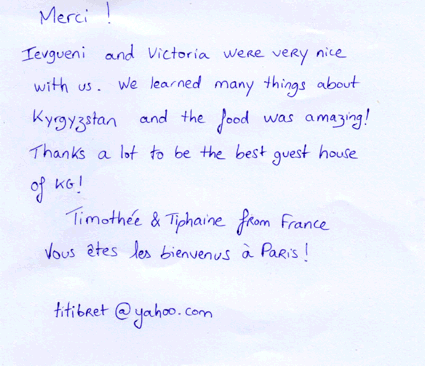 Merci !
Ievgueni and Victoria were very nice
with us. We learned many things about
Kyrgyzstan and the food was amazing!
Thanks a lot to be the best guest house
of KG!
Timothée & Tiphaine from France
Vous êtes les bienvenus à Paris !
titibret@yahoo.com